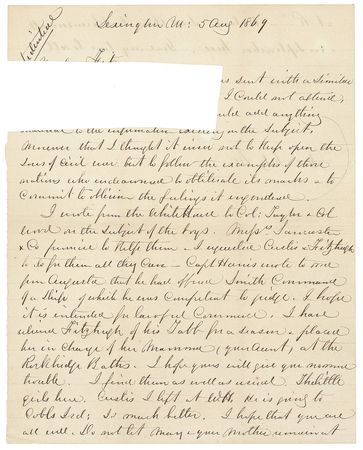 Lexington Va: 5 Aug 1869
sent with a similar
I could not attend,
could add anything
material to the information existing on the subject,
Moreover that I thought it wiser not to keep open the
sores of civil war, but to follow the examples of those
nations who endeavoured to obliterate its marks & to
commit to oblivion the feelings it engendered.
I wrote from the White House to Col: Taylor & Col
Wood on the subject of the boys. Messrs Lancaster
& Co promise to help them & I requested Custis & Fitzhugh
to do for them all they can. Capt Harris wrote to me
from Augusta that he had offered Smith Command
of a Ship of which he was competent to judge. I hope
it is intended for lawful commerce. I have
relieved Fitzhugh of his Tabb for a season & placed
her in charge of her Mamma, (your Aunt), at the
Rockbridge Baths. I hope yours will give you no more
trouble. I find them as well as usual. The little
girls here. Custis I left at White He is going to
Cobbs Isd; Is much better. I hope that you are
all well. Do not let Mary & your Mother remain at